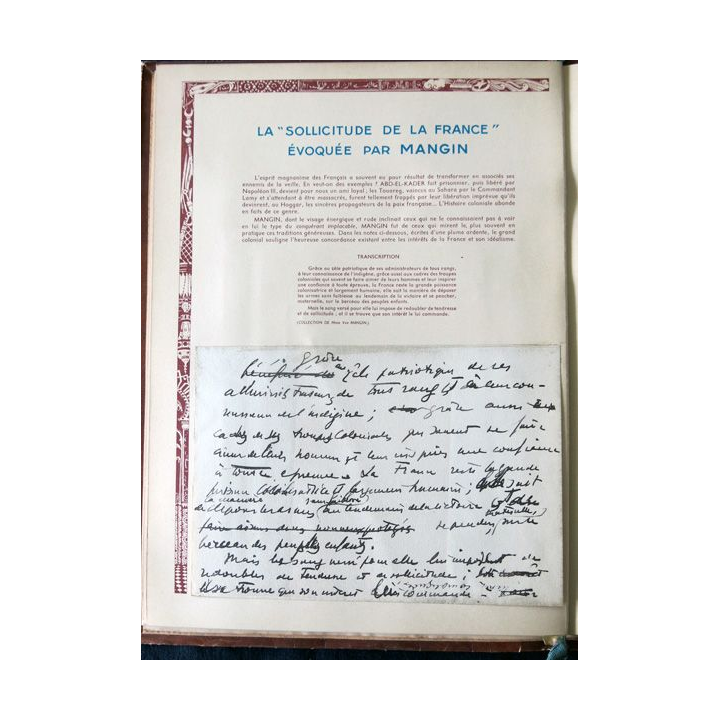 LA "SOLLICITUDE DE LA FRANCE"
ÉVOQUÉE PAR MANGIN
L'esprit magnanime des Français a souvent eu pour résultat de transformer en associés ses
ennemis de la veille. En veut-on des exemples ? ABD-EL-KADER fait prisonnier, puis libéré par
Napoléon III, devient pour nous un ami loyal ; les Touareg, vaincus au Sahara par le Commandant
Lamy et s'attendant à être massacrés, furent tellement frappés par leur libération imprévue qu'ils
devinrent, au Hoggar, les sincères propagateurs de la paix française... L'Histoire coloniale abonde
en faits de ce genre.
MANGIN, dont le visage énergique et rude inclinait ceux qui ne le connaissaient pas à voir
en lui le type du conquérant implacable, MANGIN fut de ceux qui mirent le plus souvent en
pratique ces traditions généreuses. Dans les notes ci-dessous, écrites d'une plume ardente, le grand
colonial souligne l'heureuse concordance existant entre les intérêts de la France et son idéalisme.
TRANSCRIPTION
Grâce au zèle patriotique de ses administrateurs de tous rangs,
à leur connaissance de l'indigène, grâce aussi aux cadres des troupes
coloniales qui savent se faire aimer de leurs hommes et leur inspirer
une confiance à toute épreuve, la France reste la grande puissance
colonisatrice et largement humaine ; elle sait la manière de déposer
les armes sans faiblesse au lendemain de la victoire et se pencher,
maternelle, sur le berceau des peuples enfants.
Mais le sang versé pour elle lui impose de redoubler de tendresse
et de sollicitude ; et il se trouve que son intérêt le lui commande.
(COLLECTION DE Mme Vve MANGIN.)
grâce
au zèle patriotique de ses
administrateurs de tous rangs et à leur con-
naissance de l'indigène ; grâce aussi aux
cadres des troupes coloniales qui savent se faire
aimer de leurs hommes et leur inspirer une confiance
à toute épreuve. La France reste la grande
puissance colonisatrice et largement humaine ; elle sait
la manière
de déposer les armes au lendemain de la victoire et
se pencher, maternelle,
berceau des peuples enfants.
Mais le sang versé pour elle lui impose de
redoubler de tendresse et de sollicitude ;
il se trouve que son intérêt le lui commande